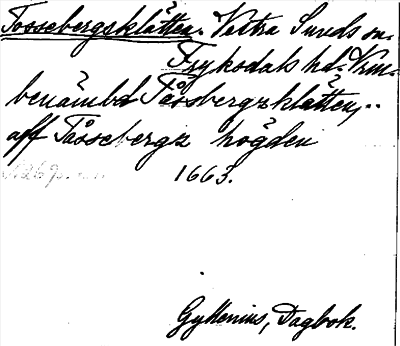 Tossebergsklätten. Vestra Sunds sn.
Frykodals hd. Vrm.
benämbd Tåssbergzklätten, ..
aff Tåssebergz högden
1663.
Gyllenius, Dagbok.